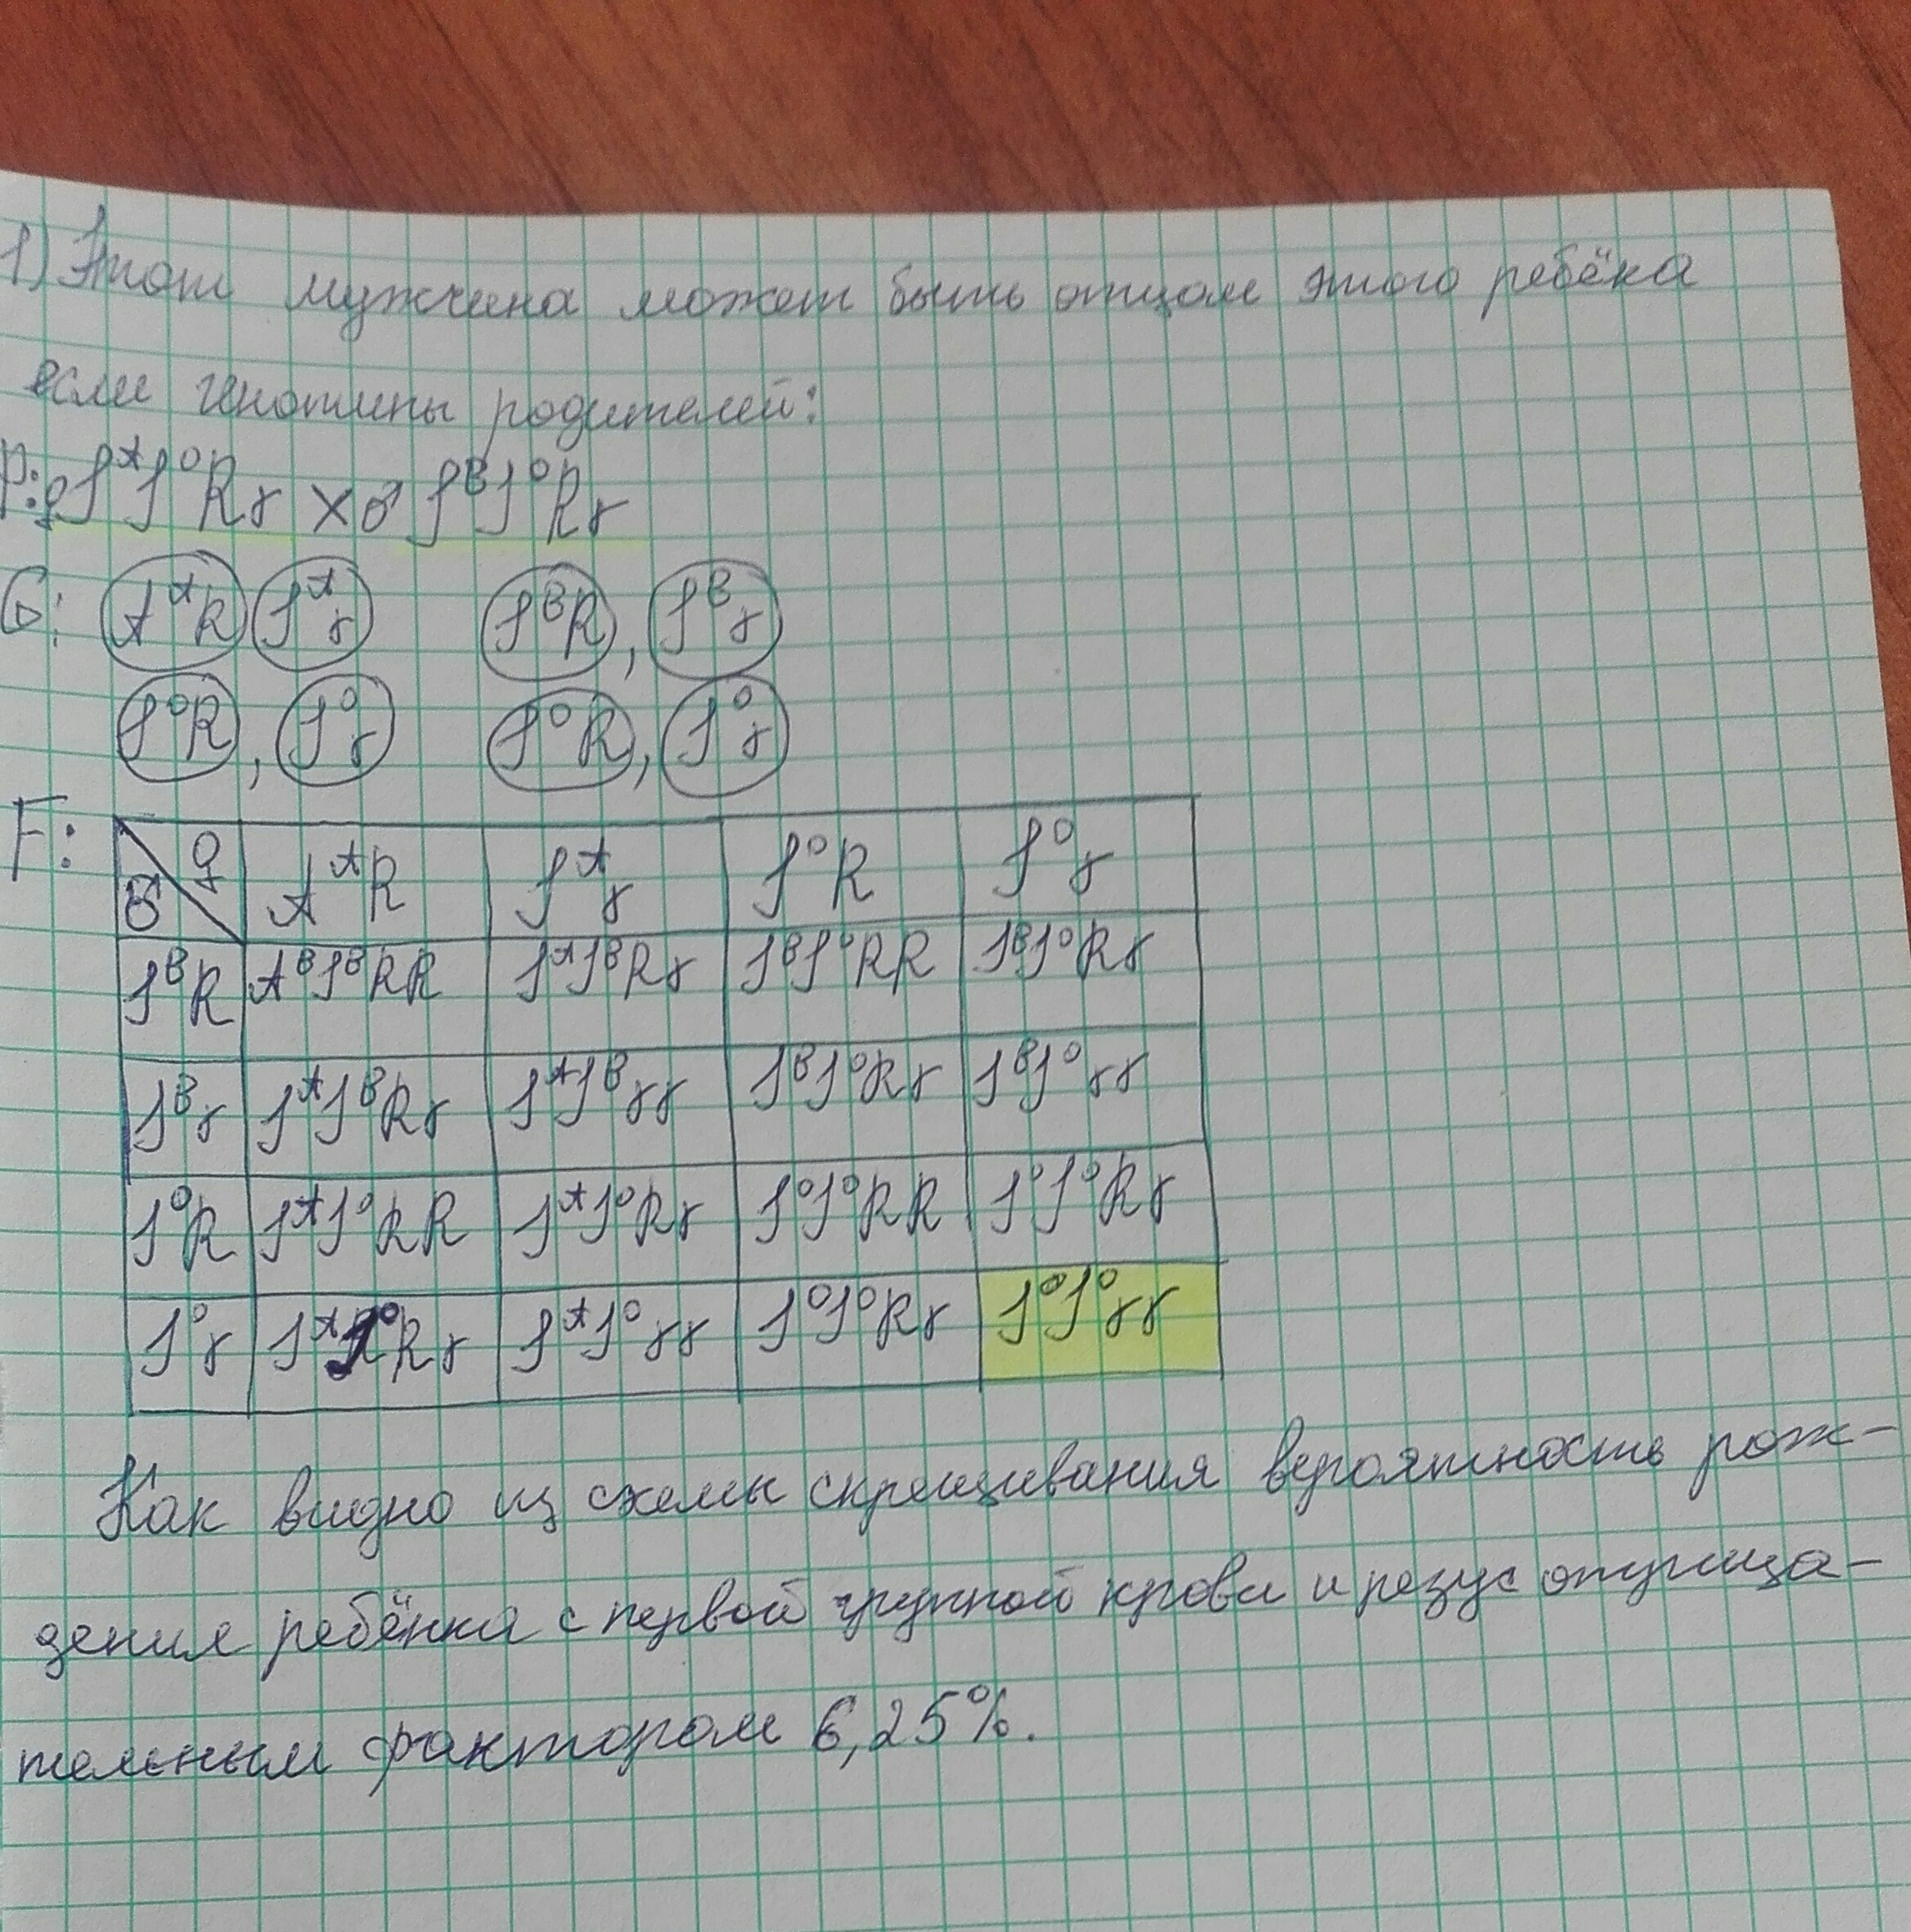 1) Этот мужчина может быть отцом этого ребёка
если генотипы родителей:
P: ♀ I^A I^O Rr × ♂ I^B I^O Rr
G: A^A R I^A r I^B R, I^B r
I^O R, I^O r I^O R, I^O r
F: ♂ ♀ A^A R I^A r I^O R I^O r
I^B R A^B I^B RR I^A I^B Rr I^B I^O RR I^B I^O Rr
I^B r I^A I^B Rr I^A I^B rr I^B I^O Rr I^B I^O rr
I^O R I^A I^O RR I^A I^O Rr I^O I^O RR I^O I^O Rr
I^O r I^A I^O Rr I^A I^O rr I^O I^O Rr I^O I^O rr
Как видно из схемы скрещивания вероятность рож-
дения ребёнка с первой группой крови и резус отрица-
тельным фактором 6,25%.